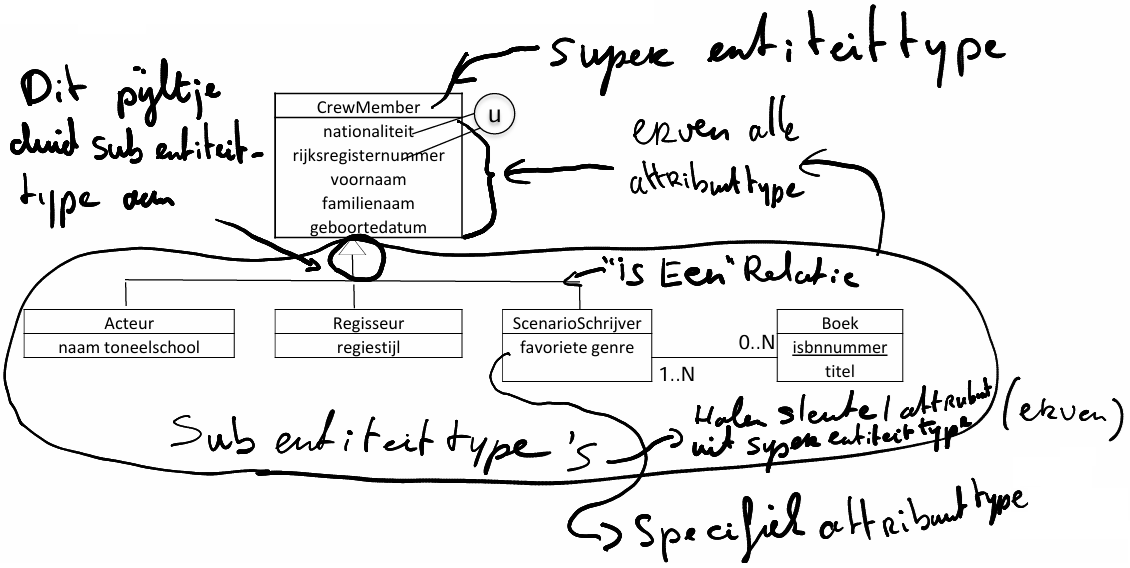 super entiteittype
Dit pijltje
duid sub entiteit-
type aan
CrewMember
u
nationaliteit
rijksregisternummer
voornaam
familienaam
geboortedatum
erven alle
attribuuttype
"is Een" Relatie
Acteur
naam toneelschool
Regisseur
regiestijl
ScenarioSchrijver
favoriete genre
0..N
1..N
Boek
isbnnummer
titel
Sub entiteittype's
Halen sleutel attribuut
uit super entiteittype
(erven)
Specifiek attribuuttype